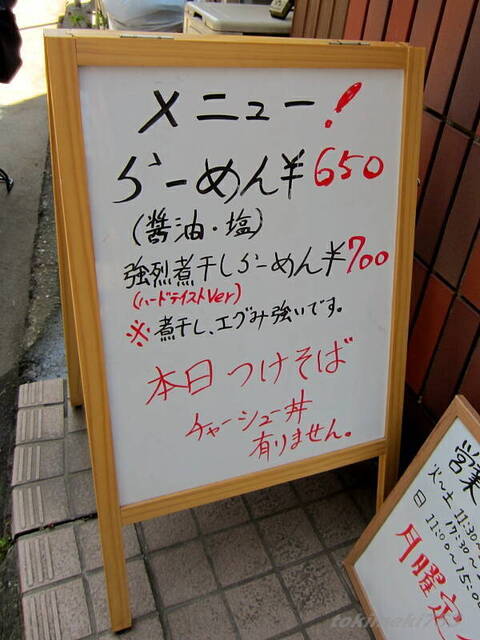 メニュー!
らーめん¥650
(醤油・塩)
強烈煮干しらーめん¥700
(ハードテイストVer)
※煮干し、エグみ強いです。
本日つけそば
チャーシュー丼
有りません。
営業
火〜土 11:30〜
17:30〜
日 11:00〜15:00
月曜定